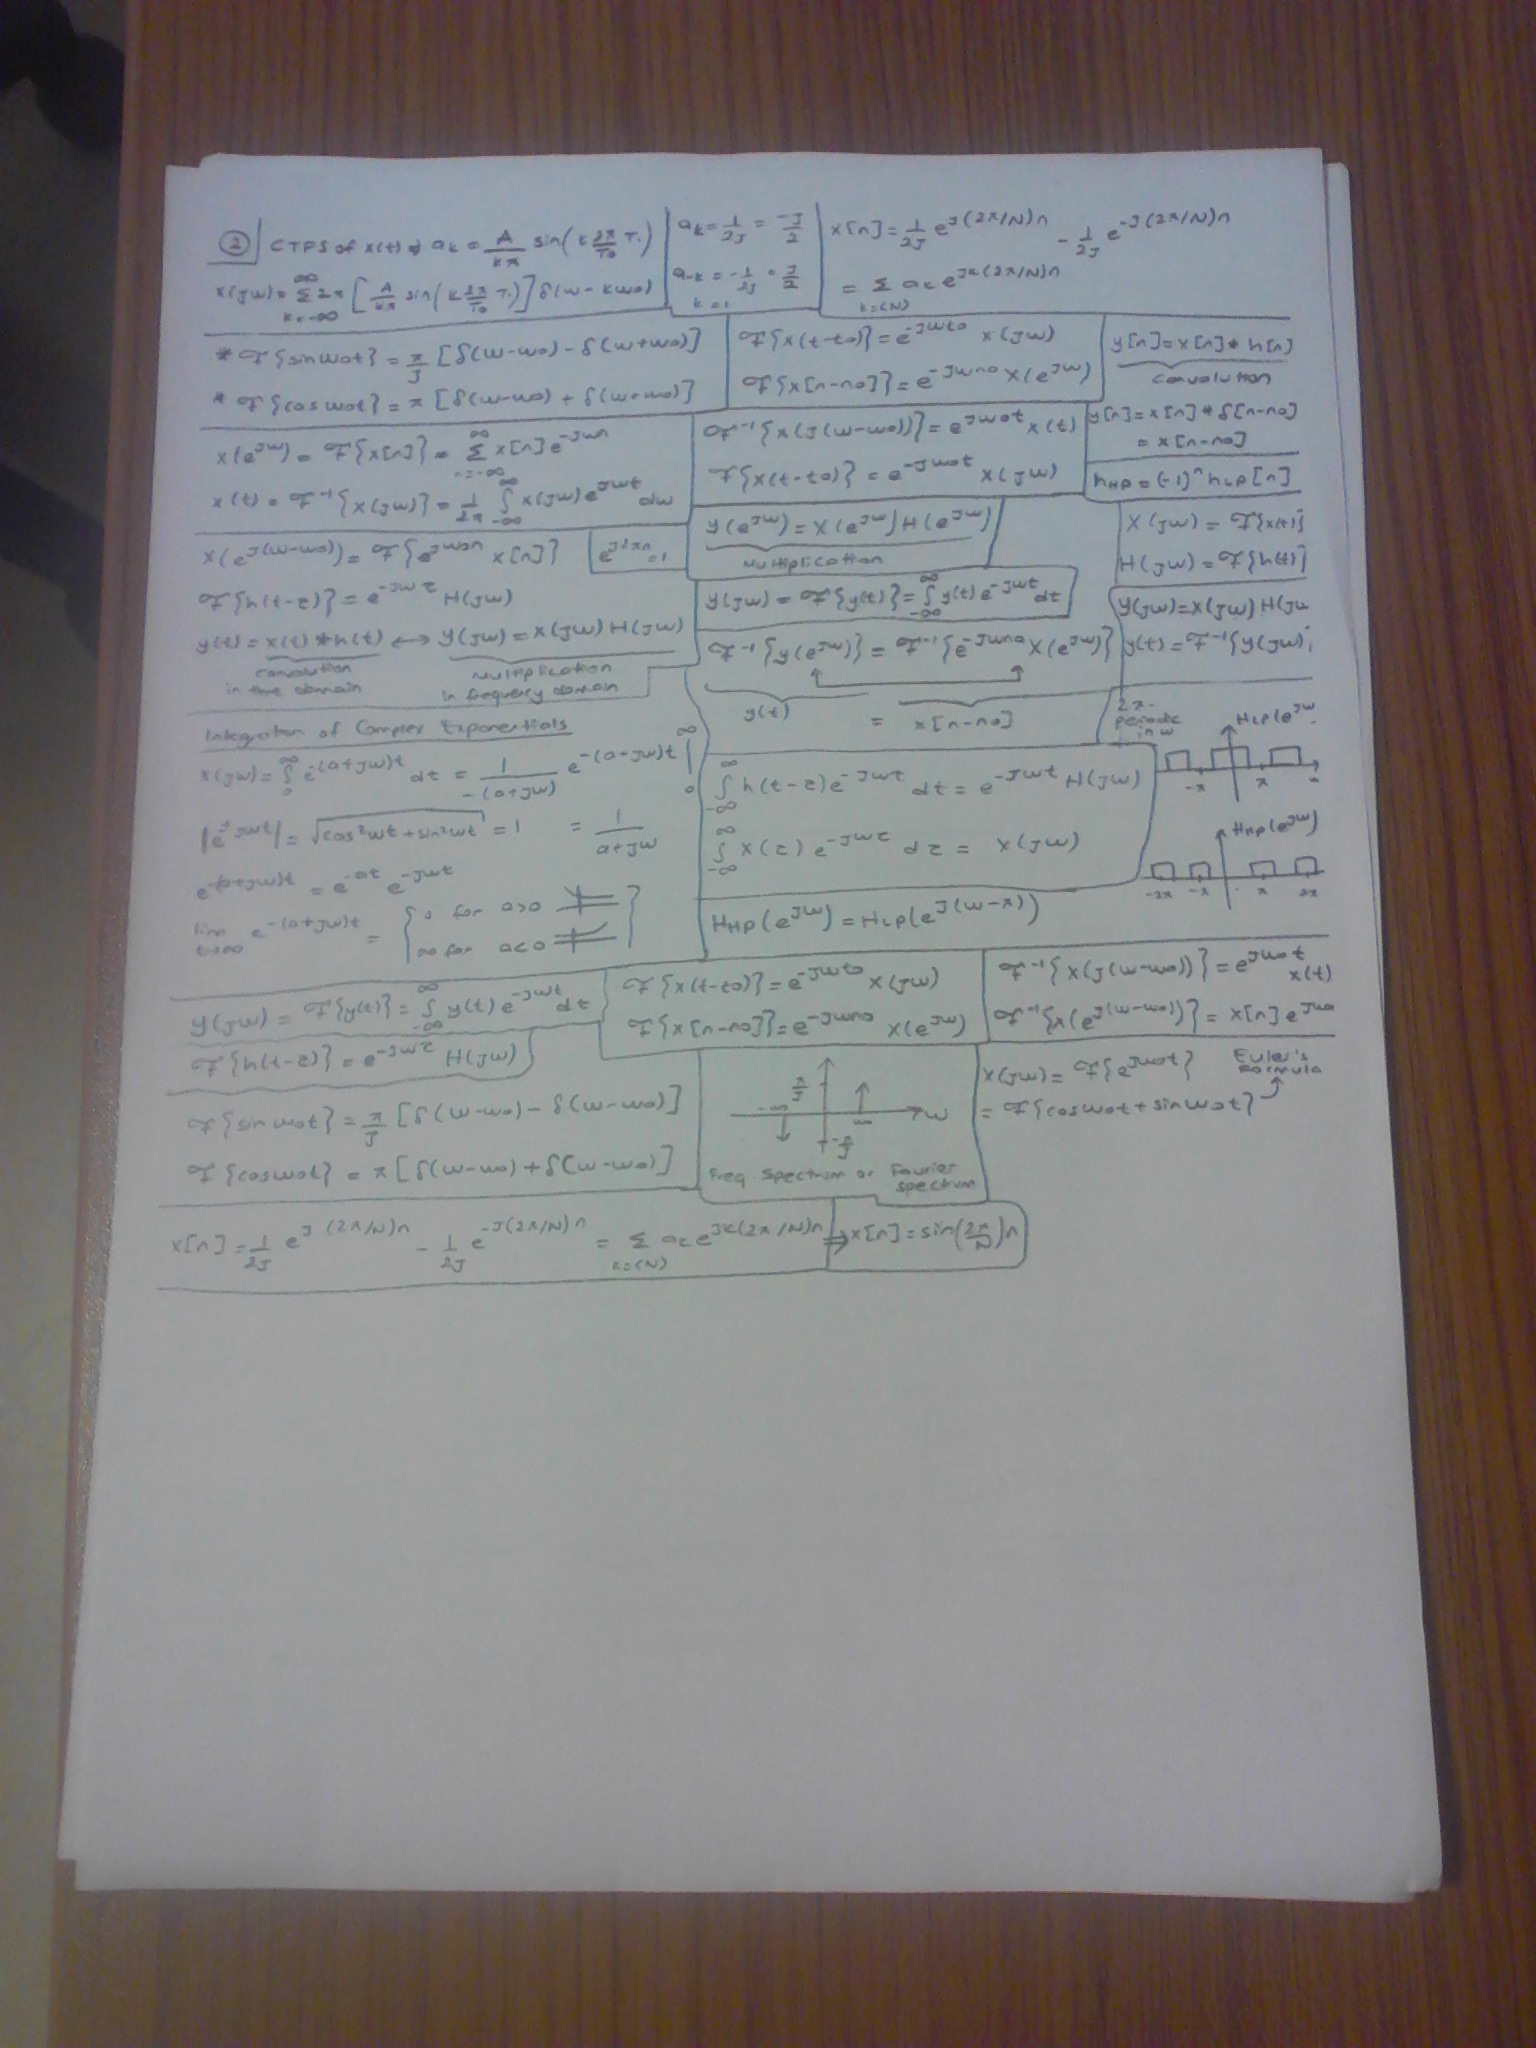 ② CTFS of x(t) → ak = A/kπ sin(k 2π/T0 T1)
X(jw) = Σ k=-∞ ∞ 2π [A/kπ sin(k 2π/T0 T1)] δ(w - kw0)
ak = 1/2j = -j/2
a-k = -1/2j = j/2
x[n] = 1/2j e^j(2π/N)n - 1/2j e^-j(2π/N)n
= Σ k=(N) ak e^jk(2π/N)n
* F{sinw0t} = π/j [δ(w-w0) - δ(w+w0)]
* F{cosw0t} = π [δ(w-w0) + δ(w+w0)]
F{x(t-t0)} = e^-jwt0 X(jw)
F{x[n-n0]} = e^-jwn0 X(e^jw)
y[n] = x[n] * h[n]
convolution
X(e^jw) = F{x[n]} = Σ n=-∞ ∞ x[n] e^-jwn
x(t) = F^-1{X(jw)} = 1/2π ∫ -∞ ∞ X(jw) e^jwt dw
F^-1{X(j(w-w0))} = e^jw0t x(t)
F{x(t-t0)} = e^-jw0t X(jw)
y[n] = x[n] * δ[n-n0]
= x[n-n0]
hHP = (-1)^n hLP[n]
X(e^j(w-w0)) = F{e^jw0n x[n]}
e^j2πn = 1
F{h(t-τ)} = e^-jwτ H(jw)
y(t) = x(t) * h(t) ↔ Y(jw) = X(jw) H(jw)
convolution in time domain
Multiplication in frequency domain
Y(e^jw) = X(e^jw) H(e^jw)
Multiplication
Y(jw) = F{y(t)} = ∫ -∞ ∞ y(t) e^-jwt dt
F^-1{Y(e^jw)} = F^-1{e^-jwn0 X(e^jw)}
y(t) = x[n-n0]
X(jw) = F{x(t)}
H(jw) = F{h(t)}
Y(jw) = X(jw) H(jw
y(t) = F^-1{Y(jw)
Integration of Complex Exponentials
X(jw) = ∫ 0 ∞ e^-(a+jw)t dt = 1/-(a+jw) e^-(a+jw)t | 0 ∞
|e^-jwt| = √cos²wt + sin²wt = 1
= 1/a+jw
e^-(a+jw)t = e^-at e^-jwt
lim t→∞ e^-(a+jw)t = { 0 for a>0
∞ for a<0 }
∫ -∞ ∞ h(t-τ) e^-jwτ dt = e^-jwt H(jw)
∫ -∞ ∞ x(τ) e^-jwτ dτ = X(jw)
HHP(e^jw) = HLP(e^j(w-π))
2π-
periodic
in w
HLP(e^jw
-π π
HHP(e^jw)
-2π -π π 2π
Y(jw) = F{y(t)} = ∫ -∞ ∞ y(t) e^-jwt dt
F{h(t-τ)} = e^-jwτ H(jw)
F{x(t-t0)} = e^-jwt0 X(jw)
F{x[n-n0]} = e^-jwn0 X(e^jw)
F^-1{X(j(w-w0))} = e^jw0t x(t)
F^-1{X(e^j(w-w0))} = x[n] e^jw0
F{sinw0t} = π/j [δ(w-w0) - δ(w-w0)]
F{cosw0t} = π [δ(w-w0) + δ(w-w0)]
π/j
w
Freq. Spectrum or Fourier
spectrum
X(jw) = F{e^jw0t}
= F{cosw0t + sinw0t}
Euler's
Formula
x[n] = 1/2j e^j(2π/N)n - 1/2j e^-j(2π/N)n = Σ k=(N) ak e^jk(2π/N)n ⇒ x[n] = sin(2π/N)n